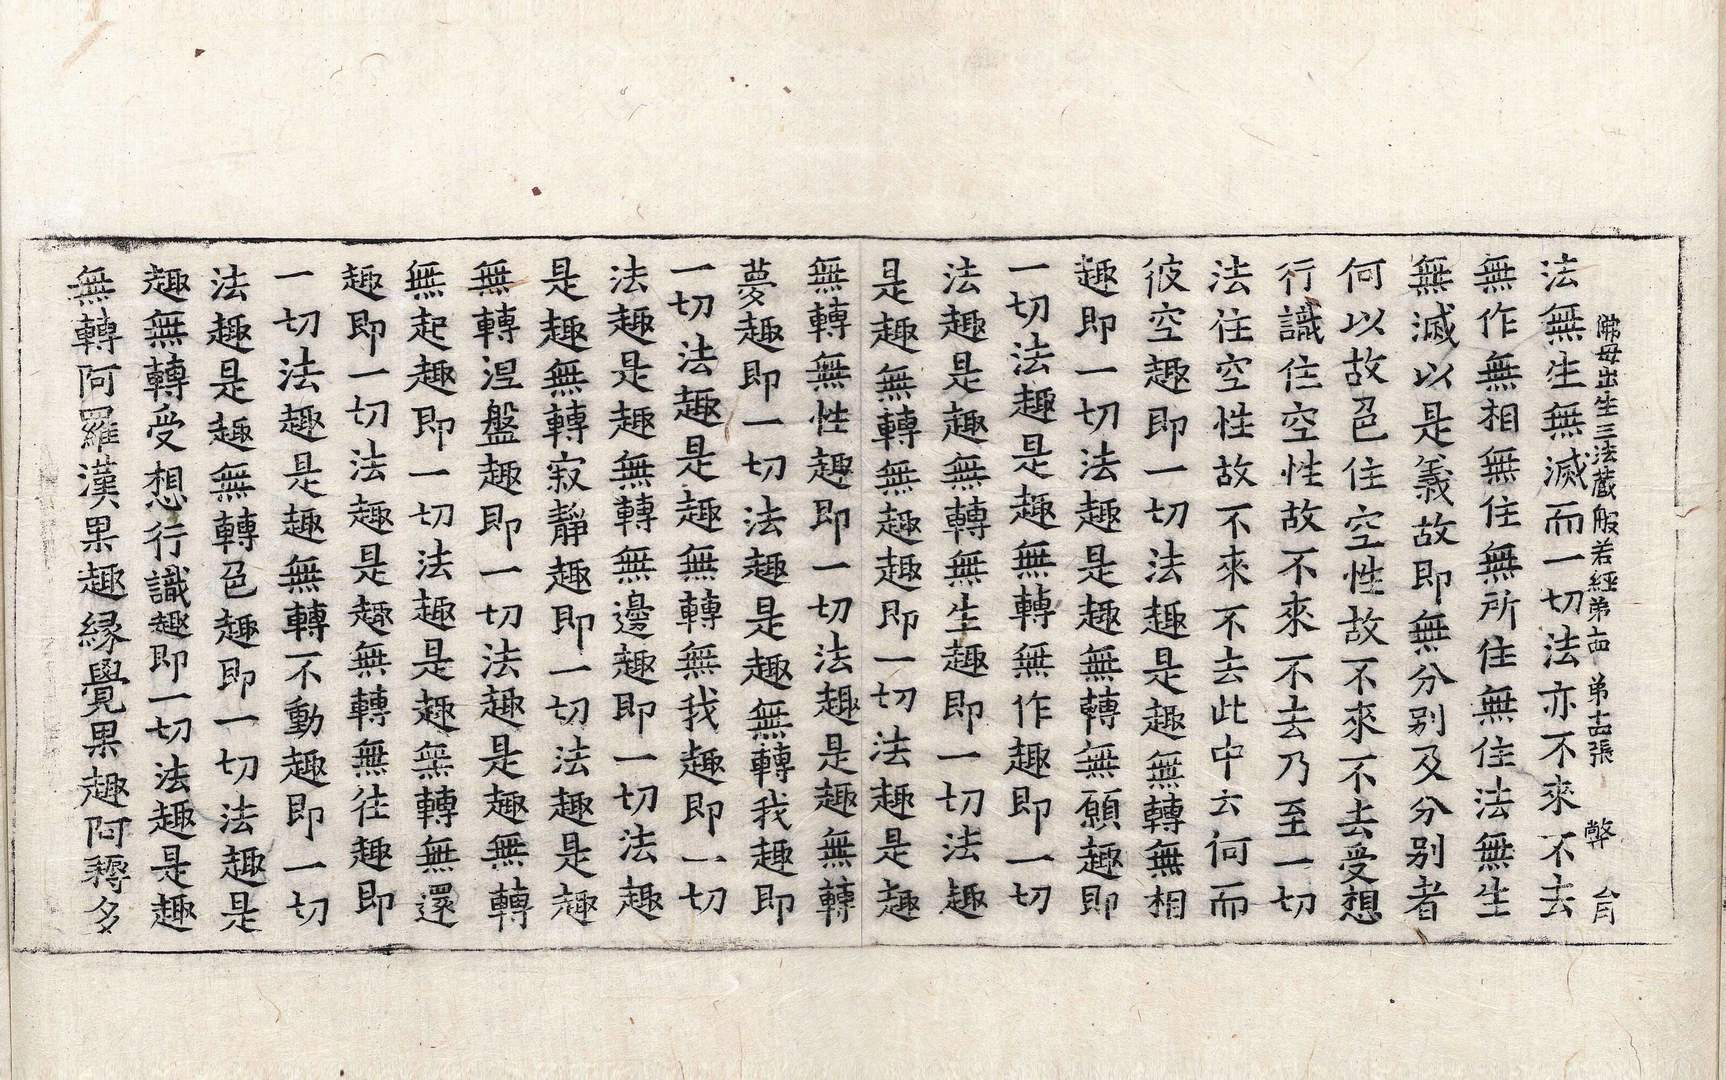 佛母出生三法藏般若經第十四 第十四張 弊 㠯
法無生無滅而一切法亦不來不去
無作無相無住無所住無住法無生
無滅以是義故即無分別及分別者
何以故色住空性故不來不去受想
行識住空性故不來不去乃至一切
法住空性故不來不去此中云何而
彼空趣即一切法趣是趣無轉無相
趣即一切法趣是趣無轉無願趣即
一切法趣是趣無轉無作趣即一切
法趣是趣無轉無生趣即一切法趣
是趣無轉無趣趣即一切法趣是趣
無轉無性趣即一切法趣是趣無轉
夢趣即一切法趣是趣無轉我趣即
一切法趣是趣無轉無我趣即一切
法趣是趣無轉無邊趣即一切法趣
是趣無轉寂靜趣即一切法趣是趣
無轉涅盤趣即一切法趣是趣無轉
無起趣即一切法趣是趣無轉無還
趣即一切法趣是趣無轉無往趣即
一切法趣是趣無轉不動趣即一切
法趣是趣無轉色趣即一切法趣是
趣無轉受想行識趣即一切法趣是趣
無轉阿羅漢果趣緣覺果趣阿耨多